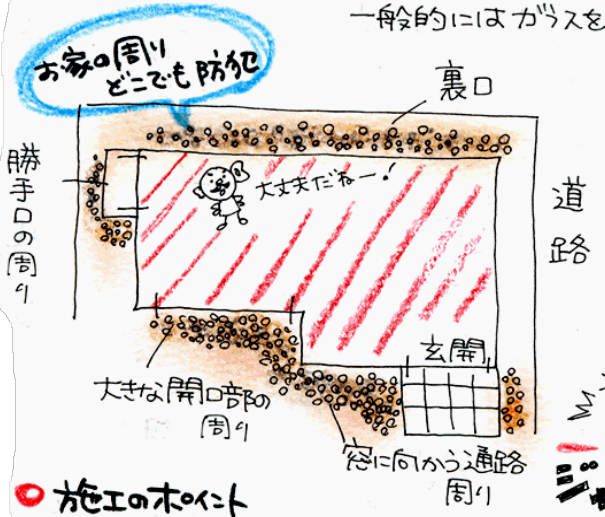 一般的にはガラスを
お家の周り
どこでも防犯
裏口
勝手口の周り
大丈夫だねー!
道路
玄関
大きな開口部の
周り
窓に向かう通路
周り
施工のポイント